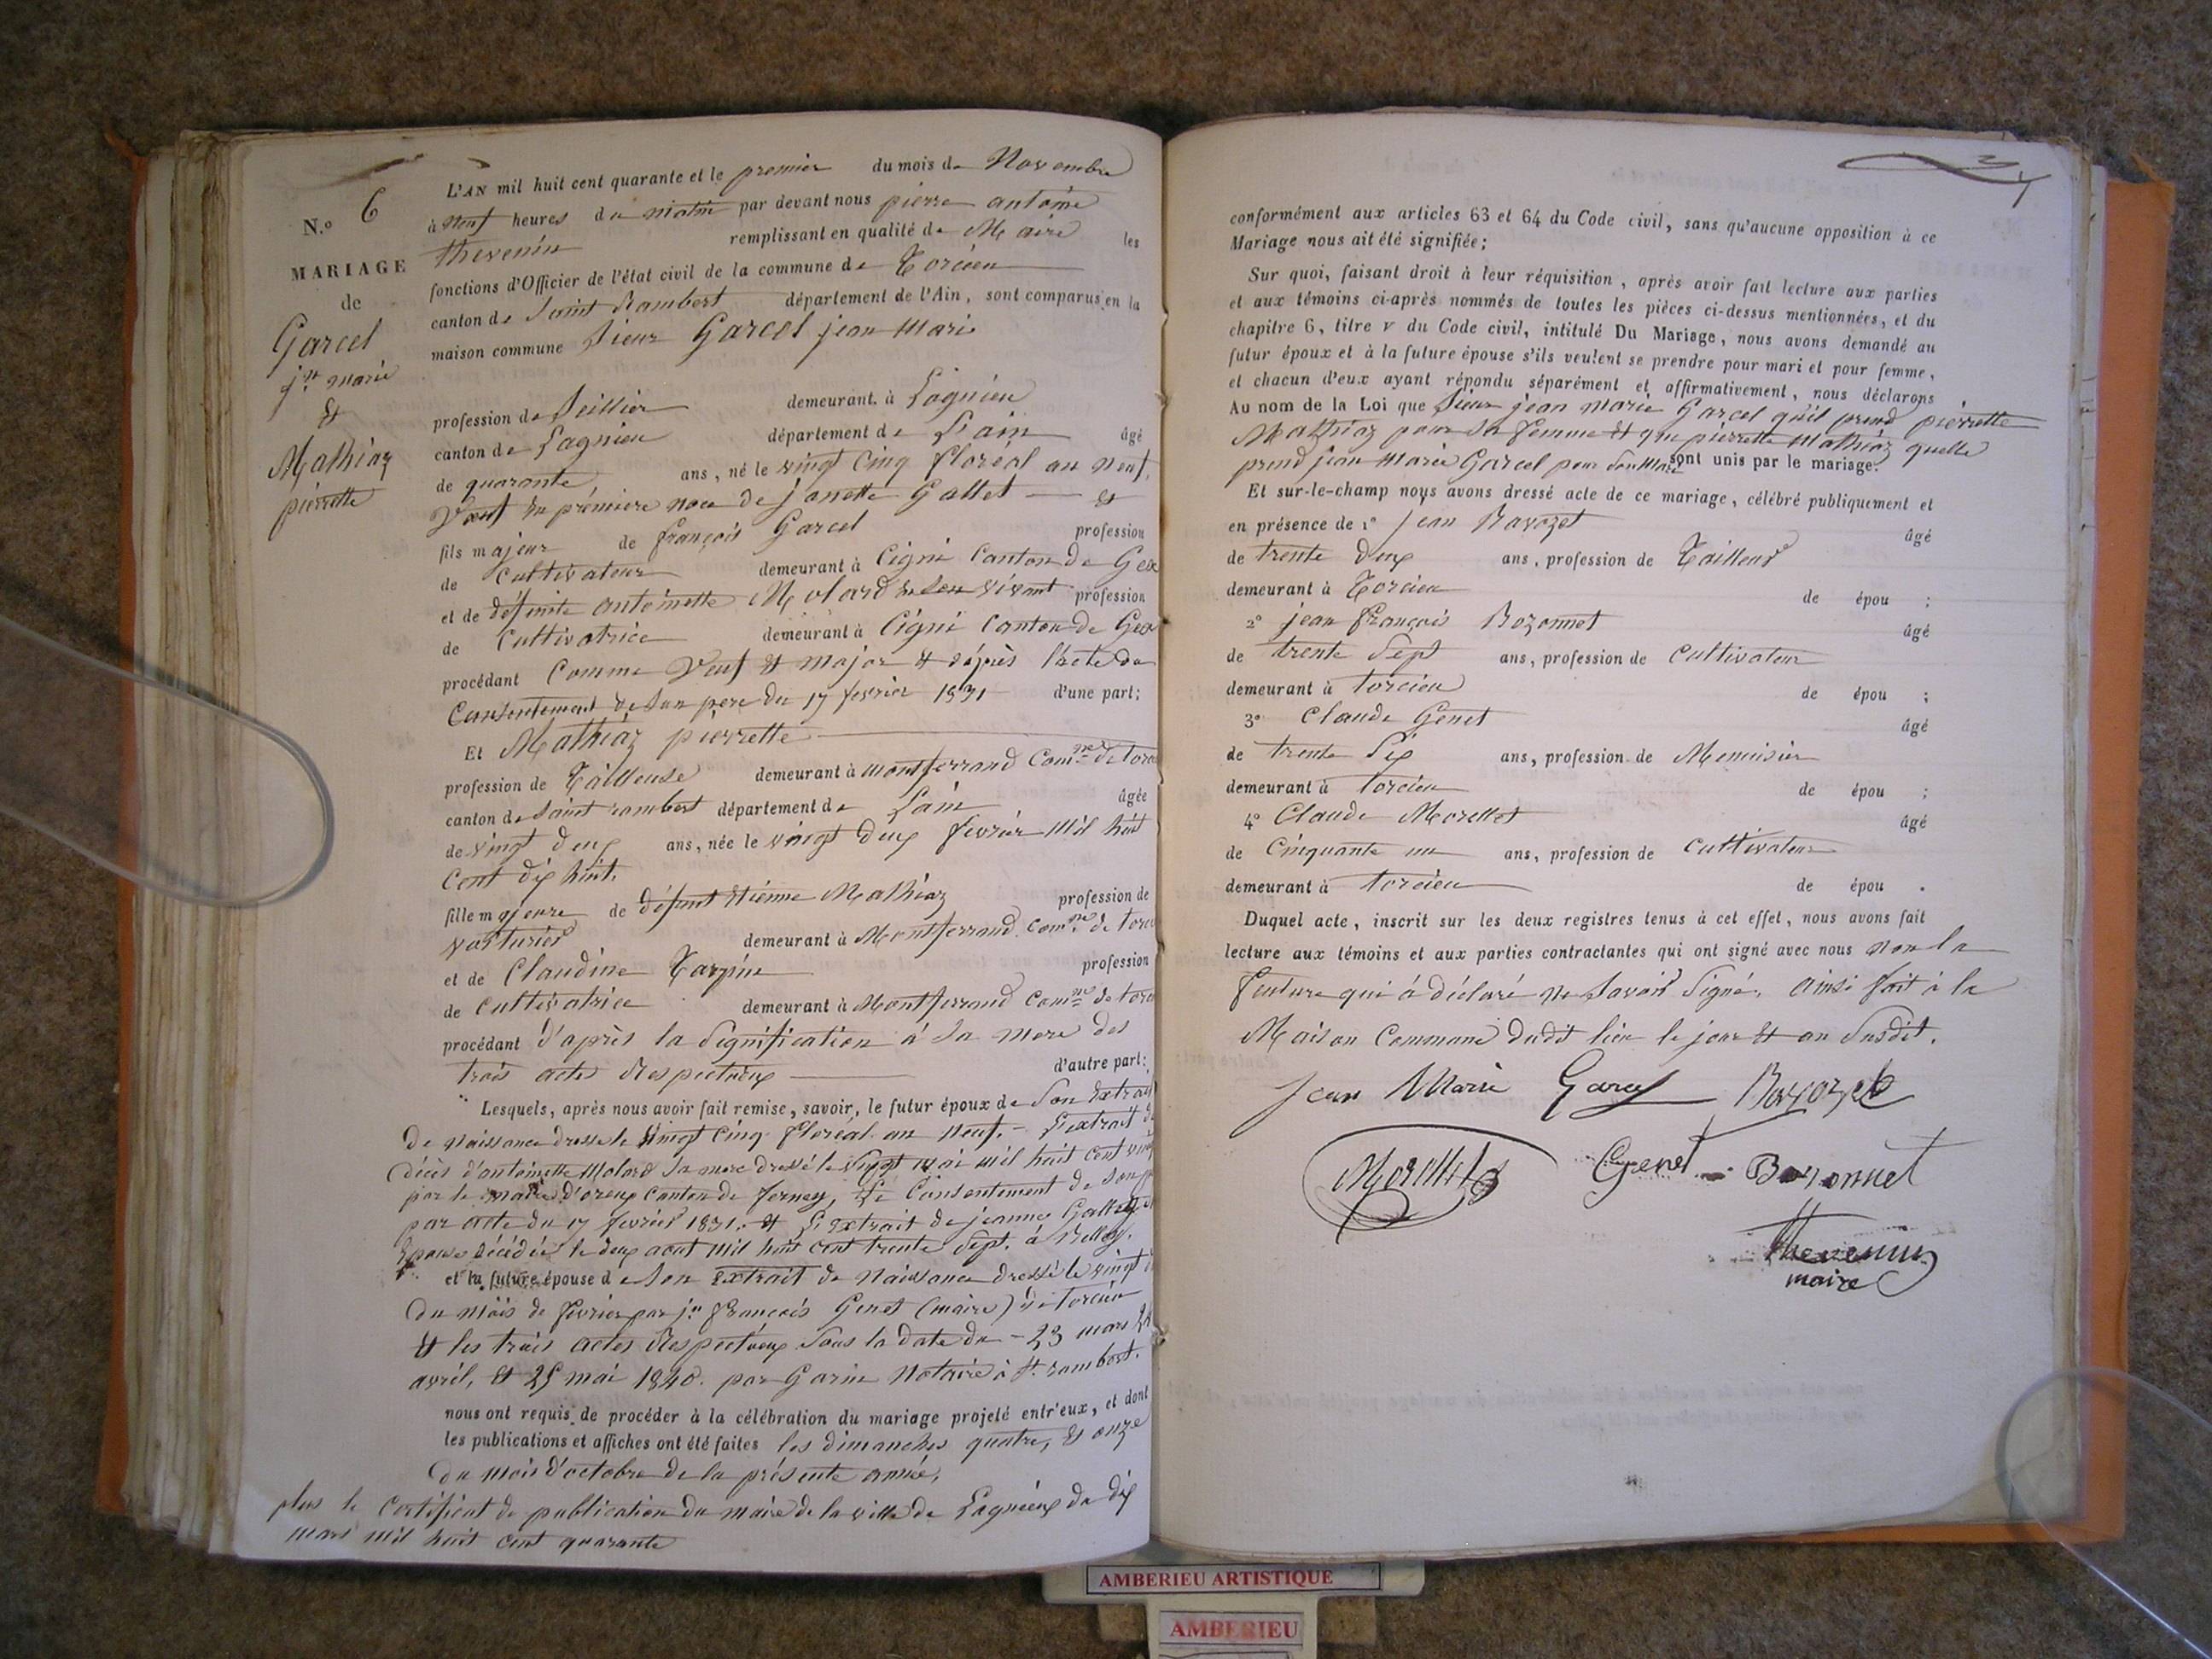 N.º 6
MARIAGE
de
Garcel
jn marie
&
Mathiaz
pierrette
L'AN mil huit cent quarante et le premier du mois de Novembre
à neuf heures du matin par devant nous pierre antoine
thevenin remplissant en qualité de Maire les
fonctions d'Officier de l'état civil de la commune de Torcieu
canton de Saint Rambert département de l'Ain, sont comparus en la
maison commune Sieur Garcel jean Marie
profession de Seillier demeurant à Lagnieu
canton de Lagnieu département de L'ain âgé
de quarante ans, né le vingt cinq floréal an neuf,
Veuf en premiere noce de janette Gallet et
fils majeur de françois Garcel profession
de cultivateur demeurant à Cigni Canton de Gex
et de défunte antoinette Molard en son vivant profession
de Cultivatrice demeurant à Cigni Canton de Gex
procédant Comme Veuf & major & d'après l'acte de
Consentement de Son pere du 17 fevrier 1831 d'une part;
Et Mathiaz pierrette
profession de Tailleuse demeurant à montferrand Comne de torc
canton de Saint rambert département de L'ain âgée
de vingt deux ans, née le vingt deux fevrier Mil huit
cent dix huit.
fille majeure de défunt Etienne Mathiaz profession de
voiturier demeurant à Montferrand Comne de torc
et de Claudine Tarpin profession
de cultivatrice demeurant à Montferrand Comne de torc
procédant d'après la Signification à Sa mere des
trois actes Respectueux d'autre part:
Lesquels, après nous avoir fait remise, savoir, le futur époux de Son Extrait
de Naissance dressé le Vingt cinq floréal an neuf. L'extrait de
décès d'antoinette Molard Sa mere dressé le Vingt mai mil huit cent
par le maire d'orenx Canton de ferney, Le Consentement de Son
par acte du 17 fevrier 1831. & L'Extrait de jeanne Gallet
Epouse Décédée le deux aout mil huit cent trente Sept. à Belley.
et la future épouse de Son Extrait de Naissance dressé le vingt
du mois de fevrier par jn françois Genet (maire) de Torcieu
& les trois actes Respectueux Sous la date du 23 mars 24
avril, & 25 mai 1840. par Garin Notaire à St. rambert.
nous ont requis de procéder à la célébration du mariage projeté entr'eux, et dont
les publications et affiches ont été faites les dimanches quatre, & onze
du mois d'octobre de la présente année,
plus le certificat de publication du maire de la ville de Lagnieux du dix
mars mil huit cent quarante
conformément aux articles 63 et 64 du Code civil, sans qu'aucune opposition à ce
Mariage nous ait été signifiée;
Sur quoi, faisant droit à leur réquisition, après avoir fait lecture aux parties
et aux témoins ci-après nommés de toutes les pièces ci-dessus mentionnées, et du
chapitre 6, titre v du Code civil, intitulé Du Mariage, nous avons demandé au
futur époux et à la future épouse s'ils veulent se prendre pour mari et pour femme,
et chacun d'eux ayant répondu séparément et affirmativement, nous déclarons
Au nom de la Loi que Sieur jean Marie Garcel qu'il prend pierrette
Mathiaz pour Sa femme & que pierrette Mathiaz quelle
prend jean Marie Garcel pour Son Mari sont unis par le mariage.
Et sur-le-champ nous avons dressé acte de ce mariage, célébré publiquement et
en présence de 1º Jean Ravozet âgé
de trente deux ans, profession de Tailleur
demeurant à Torcieu de épou ;
2º jean françois Bozonnet âgé
de trente Sept ans, profession de Cultivateur
demeurant à torcieu de épou ;
3º Claude Genet âgé
de trente Six ans, profession de Menuisier
demeurant à torcieu de épou ;
4º Claude Morellet âgé
de Cinquante un ans, profession de cultivateur
demeurant à torcieu de épou .
Duquel acte, inscrit sur les deux registres tenus à cet effet, nous avons fait
lecture aux témoins et aux parties contractantes qui ont signé avec nous non la
future qui à déclaré ne Savoir Signé. ainsi fait à la
Maison Commune dudit lieu le jour & an Susdit.
Jean Marie Garcel Ravozet
Morellet Genet Bozonnet
Thevenin
maire
AMBERIEU ARTISTIQUE
AMBERIEU